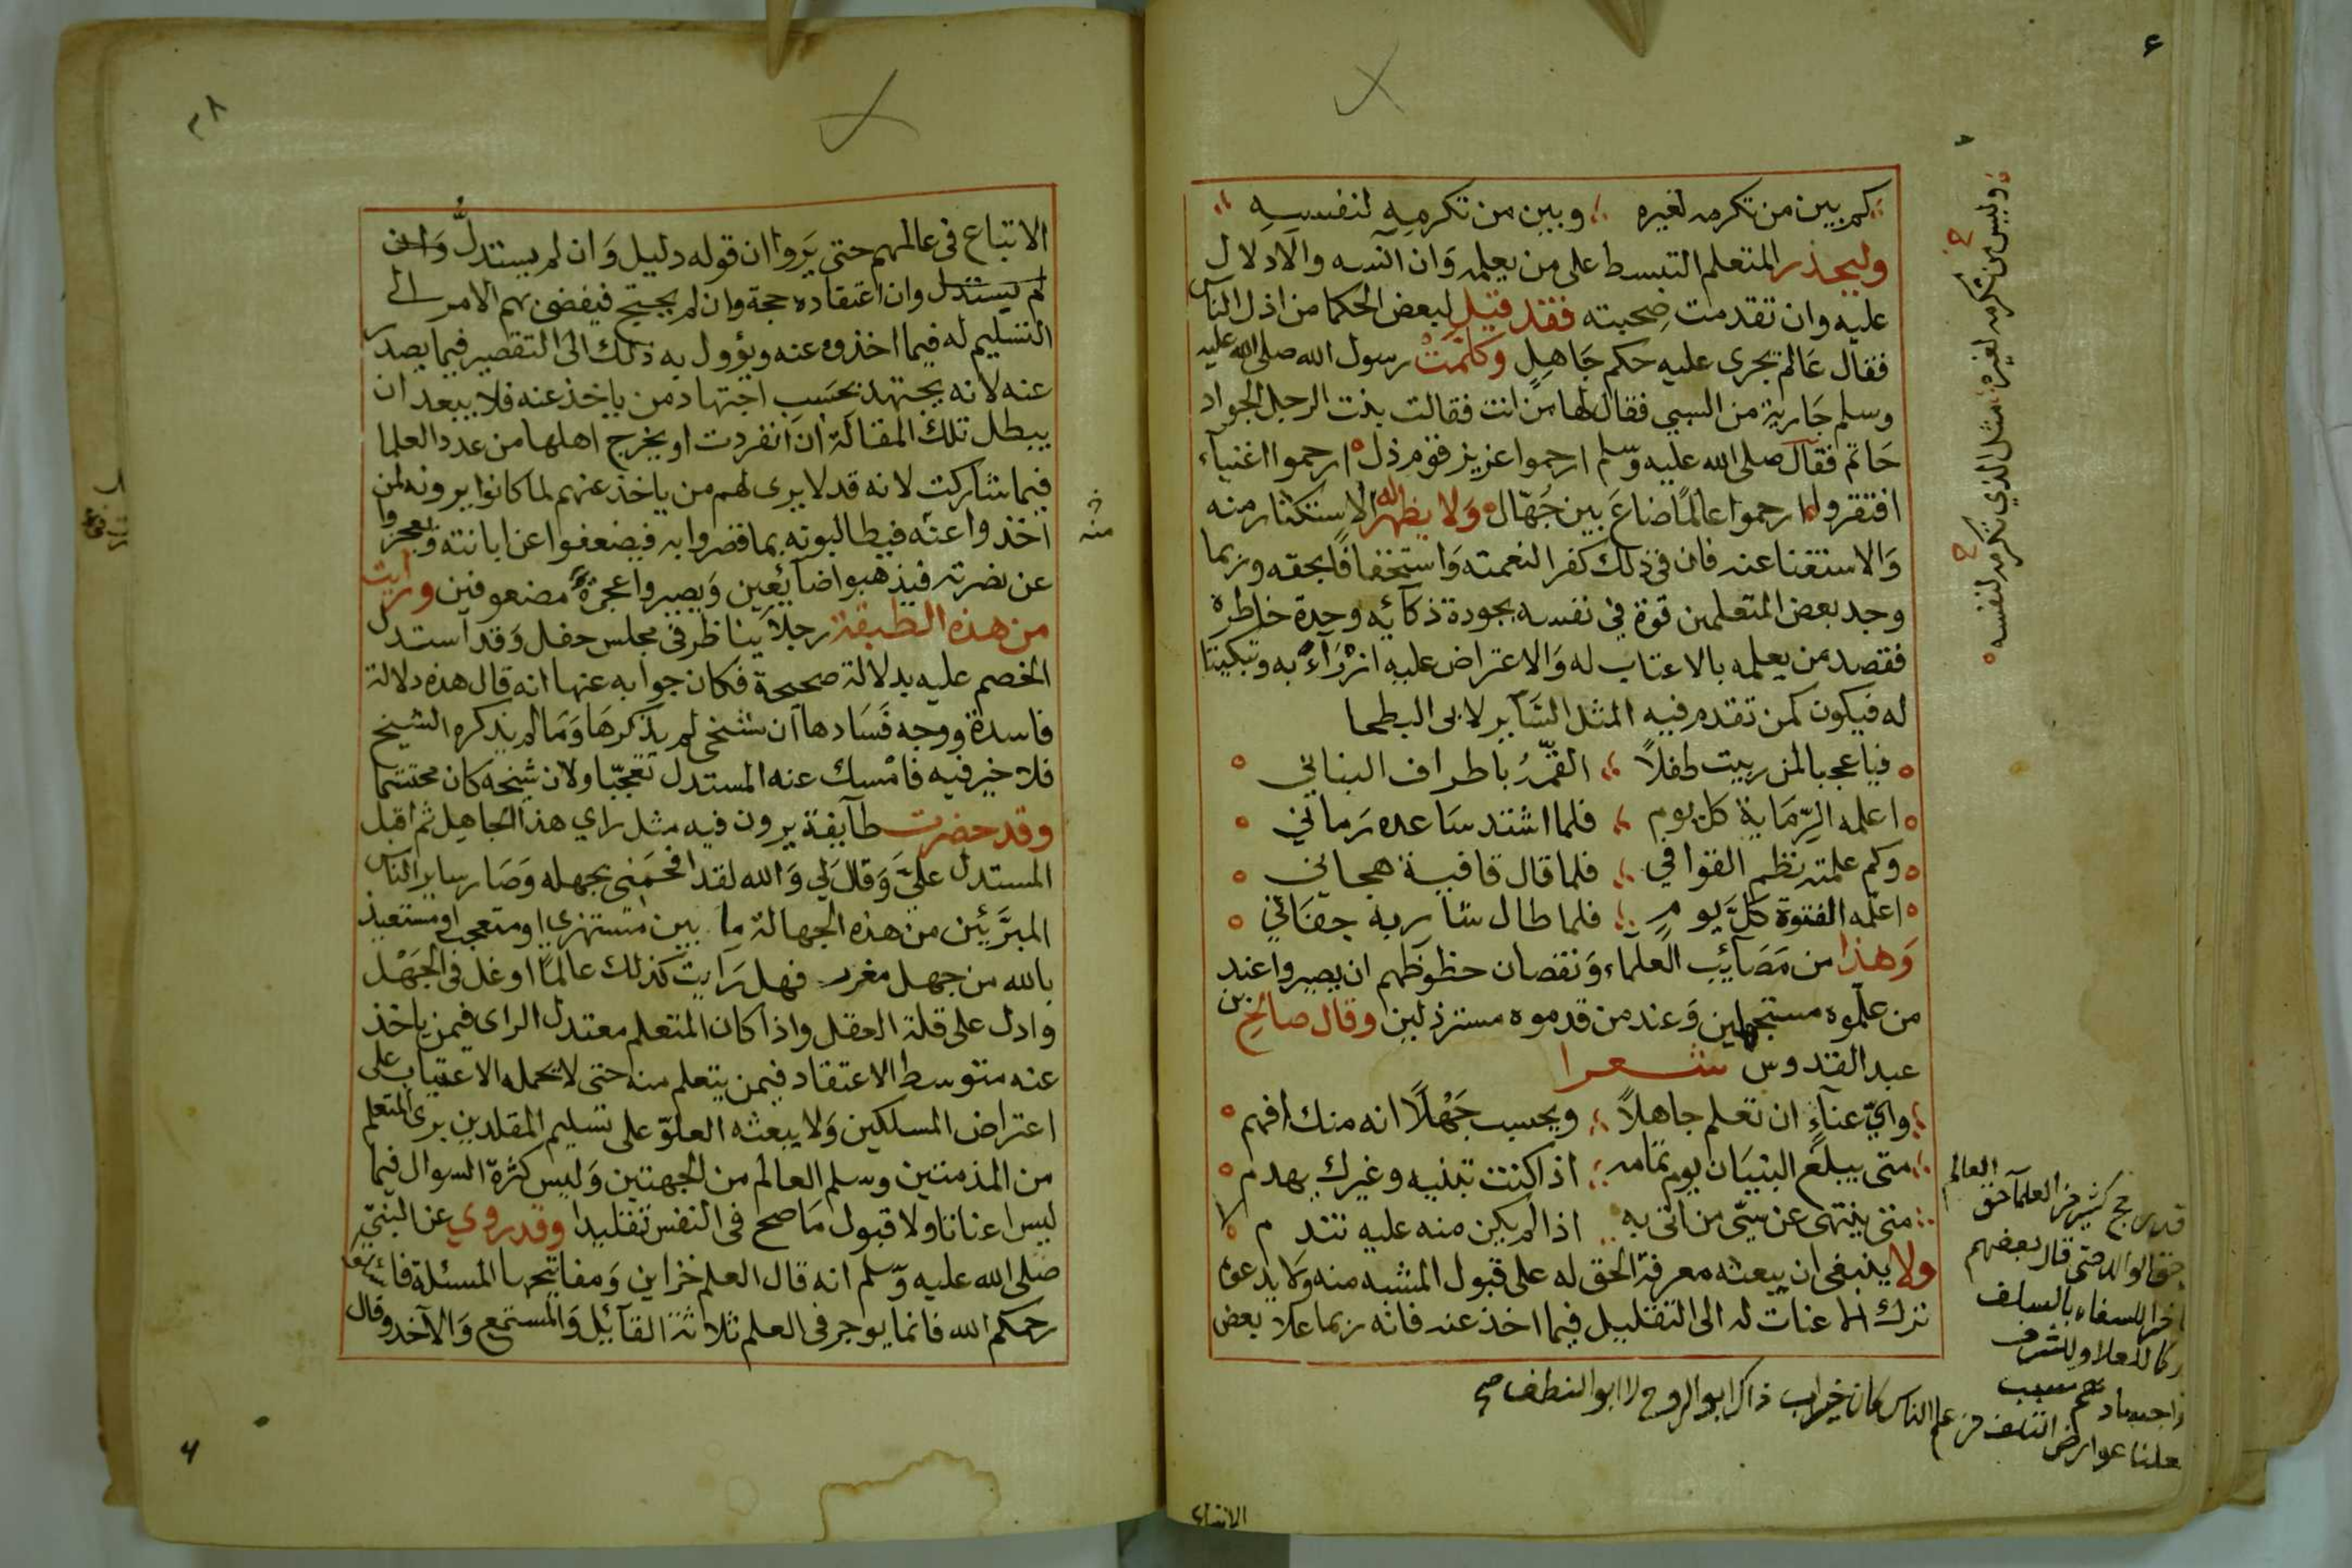 كم بين من تكرمه لغيره وبين من تكرمه لنفسه
وليحذر المتعلم التبسط على من يعلمه وَان آنسه والادلال
عليه وان تقدمت صحبته فقد قيل لبعض الحكما من اذل الناس
فقال عَالم يجرى عليه حكم جَاهلٍ وكلمَتْ رسول الله صلى الله عليه
وسلم جَارية من السبي فقال لها من انت فقالت بنت الرجل الجواد
حَاتم فقال صلى الله عليه وسلم ارحموا عزيز قوم ذل ارحموا اغنيآء
افتقروا ارحموا عالمًا ضاعَ بين جُهّال وَلا يظهر له الاستكثار منه
وَالاستغنا عنه فان في ذلك كفرا لنعمته وَاستخفافًا بحقه وربما
وجد بعض المتعلمين قوة في نفسه بجودة ذكآئه وحدة خاطره
فقصد من يعلمه بالاعنات له وَالاعتراض عليه ازْرَآءً به وتبكيتا
له فيكون كمن تقدم فيه المثل السَّآير لابى البطحا
فيا عجبا لمن ربيت طفلاً القّمُه باطراف البناني
اعلمه الرِّمَاية كل يوم فلما اشتد سَاعده رَماني
وكم علمته نظم القوافي فلما قال قافية هجاني
اعلّمه الفتوة كلَّ يومٍ فلما طال شاربه جفَاني
وَهذا من مَصَآئِب العلمآء وَنقصان حظوظهم ان يصيروا عند
من علّموه مستجهلين وَعند من قدموه مسترذلين وقال صالح بن
عبد القدوس شعرا
وانّ عنآءً ان تعلم جاهلاً ويحسب جَهْلاً انه منك افهم
متى يبلغ البنيَان يوم تمامه اذا كنت تبنيه وغيرك يهدم
متى ينتهى عن سيّى من اتى به اذا لم يكن منه عليه تندم
ولا ينبغى ان يبعثه معرفة الحق له على قبول المشبه منه ولا يدعوه
ترك الاعنات له الى التقليد فيما اخذ عنه فانه ربما غلا بعض
وليس من تكرمه لغيره مثل الذي تكرمه لنفسه
العالم
كثير من العلمآ حق
حق الوالد حتى قال بعضهم
علم الناس كان خير اب ذاك ابو الروح لا ابو النطف صح
الاتباع
٣٨
الاتباع فى عالمهم حتى يَروا ان قوله دليل وَان لم يستدلَّ وَان
لم يستدل وان اعتقاده حجة وان لم يحتج فيفضى بهم الامر الى
التسليم له فيما اخذوه عنه ويؤول به ذلك الى التقصير فيما يصدر
عنه لانه يجتهد بحَسَبِ اجتهاد من ياخذ عنه فلا يبعد ان
يبطل تلك المقالة ان انفردت او يخرج اهلها من عدد العلما
فيما شاركت لانه قد لا يرى لهم من ياخذ عنهم لما كانوا يرونه لمن
اخذوا عنه فيطالبونه بما قصروا به فيضعفوا عن ابانته ويعجزوا
عن نصرته فيذهبوا ضآئعين وَيصيروا عجزةً مضعوفين ورايت
من هذه الطبقة رجلاً يناظر فى مجلس حفل وَقد استدل
الخصم عليه بدلالة صحيحة فكان جوابه عنها انه قال هذه دلالة
فاسدة ووجه فَسَادها ان شيخى لم يذكرهَا وَمَا لم يذكره الشيخ
فلا خير فيه فامْسك عنه المستدل تعجّبا ولان شيخه كان محتشما
وقد حضرت طآيفة يرون فيه مثل راي هذا الجاهل ثم اقبل
المستدل علىَّ وَقال لي وَالله لقد افحَمَنى بجهله وَصَار ساير الناس
المبرَّئين من هذه الجهالة ما بين مستهزي او متعجب او مستعيذ
بالله من جهل مغرب فهل رَايت كذلك عالمًا اوغل فى الجَهْل
وادل على قلة العقل واذا كان المتعلم معتدل الراى فيمن ياخذ
عنه متوسط الاعتقاد فيمن يتعلم منه حتى لا يحمله الاعنات على
اعتراض المسلكين وَلا يبعثه الغلوّ على تسليم المقلدين برى المتعلم
من المذمتين وسلم العالم من الجهتين وَليس كثرة السوال فيما
ليس اعناتا ولا قبول مَا صح فى النفس تقليدا وقد روي عن النبيّ
صلى الله عليه وسلم انه قال العلم خزاين وَمفاتيحها المسئلة فاسئلوا
رحمكم الله فانما يوجر فى العلم ثلاثة القآئل وَالمستمع وَالآخذ وقال
منه